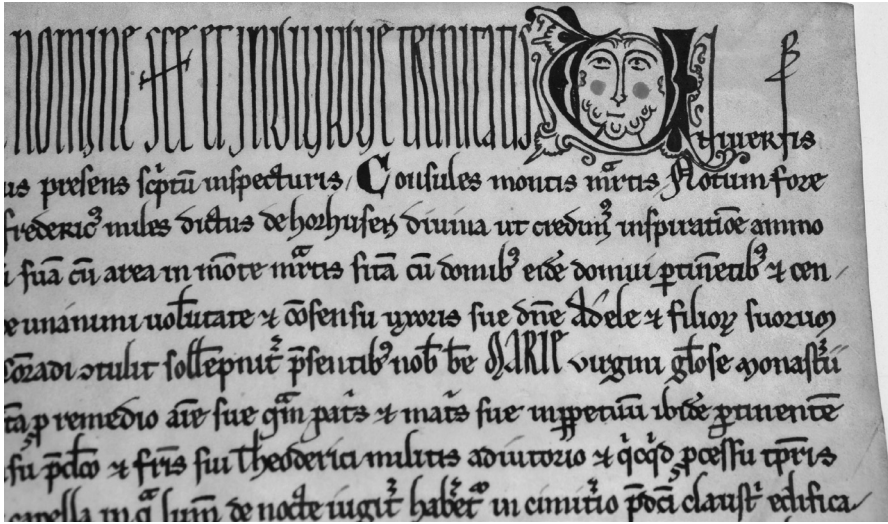 nomine sce et individue trinitatis Universis
us presens scptū inspecturis, Consules montis mrtis Notum fore
frederic⁹ miles dictus de horhusen divina ut credim⁹ inspiratiōe animo
suā cū area in mōte mrtis sitā cū domib⁹ eidē domui ptinētib⁹ ⁊ cen
unanimi volūtate ⁊ cōsensu uxoris sue dn̄e Adele ⁊ filioꝝ suorum
cōradi ɔtulit sollēpnit p̄sentib⁹ nob̄ bē MARIE virgini glōse monastii
ꝓ remedio aīe sue qm̄ patis ⁊ matis sue inppetuū ibidē ptinentē
p̄dc̄o ⁊ fr̄is sui theoderici militis adiutorio ⁊ qicqd pcessu tpr̄is
capella in qa lum̄ de nocte iugit habet in cimitio p̄dci claust edifica